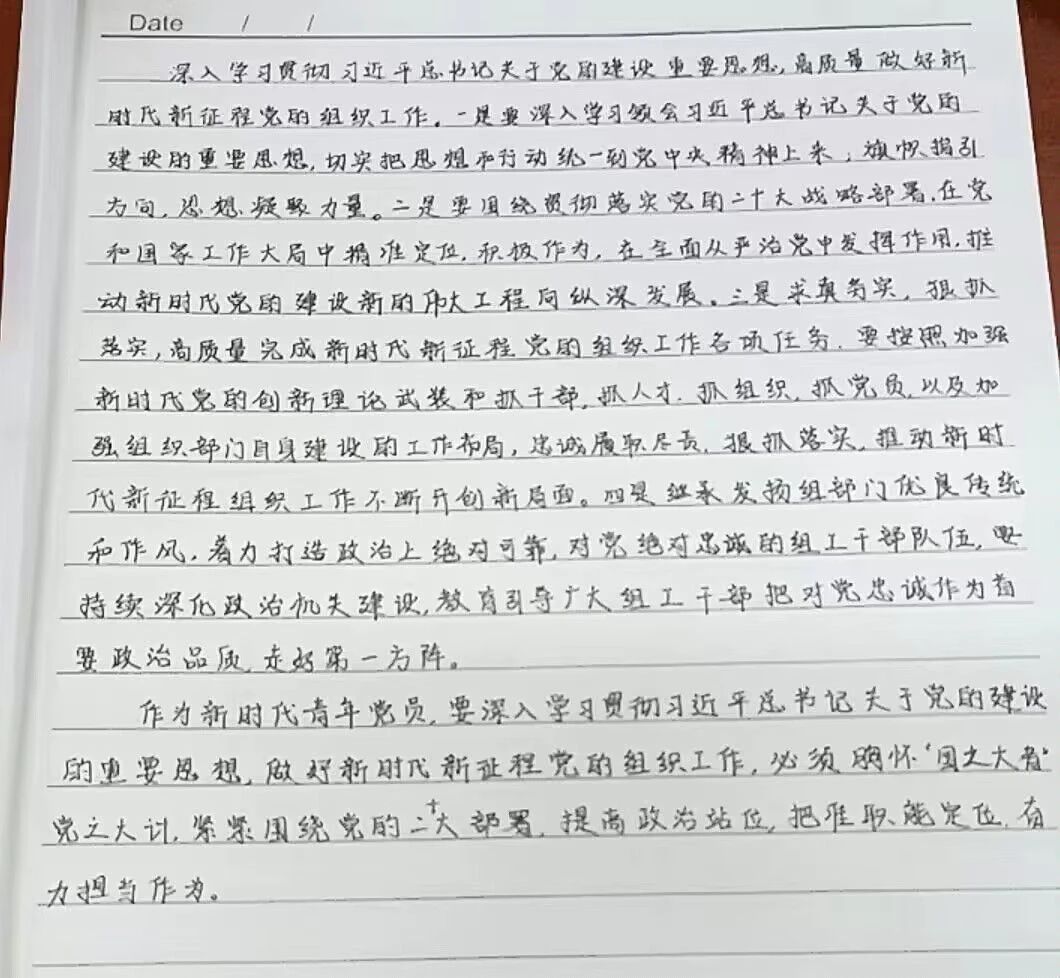 Date / /
深入学习贯彻习近平总书记关于党的建设重要思想,高质量做好新
时代新征程党的组织工作。一是要深入学习领会习近平总书记关于党的
建设的重要思想,切实把思想和行动统一到党中央精神上来,旗帜指引
方向,思想凝聚力量。二是要围绕贯彻落实党的二十大战略部署,在党
和国家工作大局中精准定位,积极作为,在全面从严治党中发挥作用,推
动新时代党的建设新的伟大工程向纵深发展。三是求真务实,狠抓
落实,高质量完成新时代新征程党的组织工作各项任务.要按照加强
新时代党的创新理论武装和抓干部,抓人才.抓组织,抓党员,以及加
强组织部门自身建设的工作布局,忠诚履职尽责,狠抓落实,推动新时
代新征程组织工作不断开创新局面。四是继承发扬组部门优良传统
和作风,着力打造政治上绝对可靠,对党绝对忠诚的组工干部队伍,要
持续深化政治机关建设,教育引导广大组工干部把对党忠诚作为首
要政治品质,走好第一方阵。
作为新时代青年党员,要深入学习贯彻习近平总书记关于党的建设
的重要思想,做好新时代新征程党的组织工作,必须胸怀“国之大者”
党之大计,紧紧围绕党的二十大部署,提高政治站位,把准职能定位,有
力担当作为。